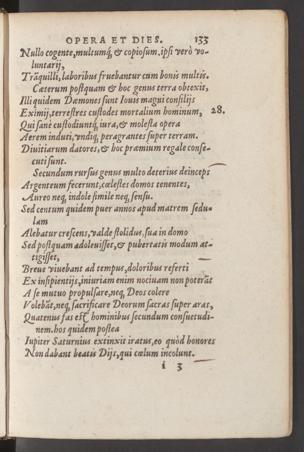 OPERA ET DIES. 133
Nullo cogente, multumq́, & copiosum, ipsi verò vo-
luntarij,
Trãquilli, laboribus fruebantur cum bonis multis.
Cæterum postquam & hoc genus terra obtexit,
Illi quidem Dæmones sunt Iouis magni consilijs
Eximij, terrestres custodes mortalium hominum,
28.
Qui sanè custodiuntq́, iura, & molesta opera
Aerem induti, vndiq, peragrantes super terram.
Diuitiarum datores, & hoc præmium regale conse-
cuti sunt.
Secundum rursus genus multo deterius deinceps
Argenteum fecerunt, cœlestes domos tenentes,
Aureo neq, indole simile neq, sensu.
Sed centum quidem puer annos apud matrem sedu-
lam
Alebatur crescens, valde stolidus, sua in domo
Sed postquam adoleuisset, & pubertatis modum at-
tigisset,
Breue viuebant ad tempus, doloribus referti
Ex insipientijs, iniuriam enim nociuam non poterãt
A se mutuo propulsare, neq, Deos colere
Volebãt, neq, sacrificare Deorum sacras super aras,
Quatenus fas est hominibus secundum consuetudi-
nem. hos quidem postea
Iupiter Saturnius extinxit iratus, eo quòd honores
Non dabant beatis Dijs, qui cœlum incolunt.
i 3